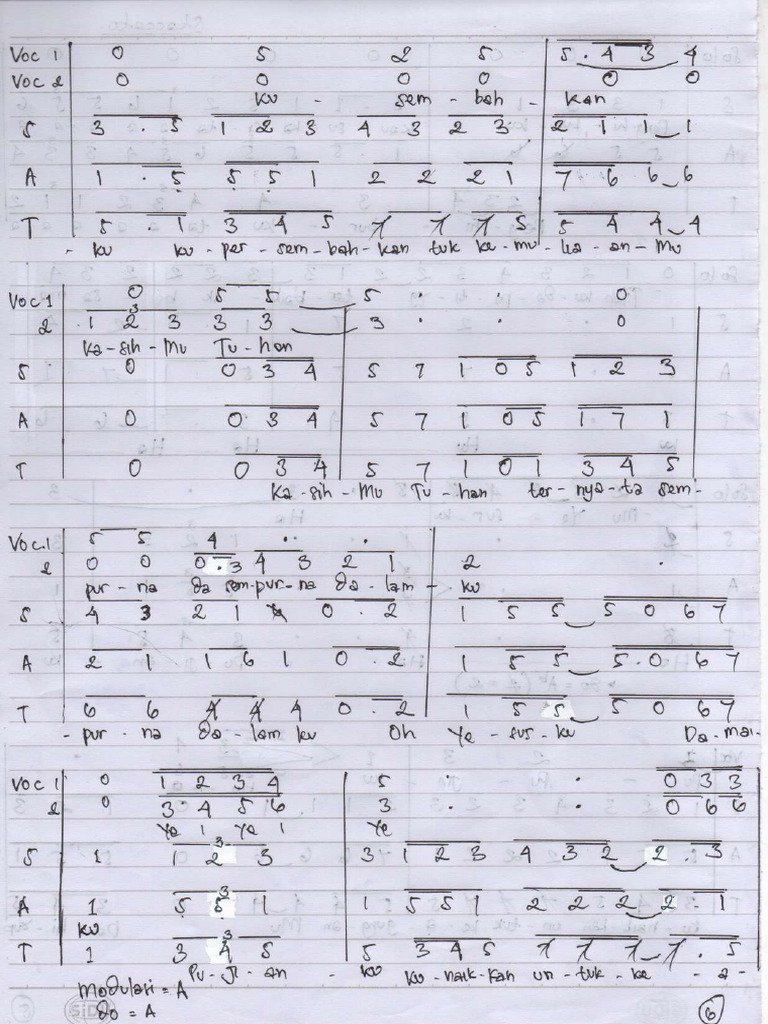 Voc 1 0 5 2 5 5 . 4 3 4
Voc 2 0 0 0 0 0 0
ku - sem - bah - kan
S 3 . 5 1 2 3 4 3 2 3 2 1 1 1
A 1 . 5 5 5 1 2 2 2 1 7 6 6 6
T 5 . 1 3 4 5 7 7 7 5 5 4 4 4
- ku ku - per - sem - bah - kan tuk ke - mu - lia - an - Mu
Voc 1 0 5 5 5 . . 0
2 1 2 3 3 3 3 . . 0
Ka - sih - Mu Tu - han
S 0 0 3 4 5 7 1 0 5 1 2 3
A 0 0 3 4 5 7 1 0 5 1 7 1
T 0 0 3 4 5 7 1 0 1 3 4 5
Ka - sih - Mu Tu - han ter - nya - ta sem -
Voc. 1 5 5 4 . .
2 0 0 0 . 3 4 3 2 1 2 .
pur - na da sem - pur - na da - lam - ku
S 4 3 2 1 0 . 2 1 5 5 5 0 6 7
A 2 1 1 6 1 0 . 2 1 5 5 5 . 0 6 7
T 6 6 4 4 4 0 . 2 1 5 5 5 0 6 7
- pur - na da - lam ku Oh Ye - sus - ku Da - mai -
Voc 1 0 1 2 3 4 5 . . 0 3 3
2 0 3 4 5 6 3 . . 0 6 6
Ye Ye Ye
S 1 1 2 3 3 1 2 3 4 3 2 2 . 3
A 1 5 5 1 1 5 5 1 2 2 . 2 2 . 1
ku
T 1 3 4 5 5 3 4 5 7 7 7 7 . 5
Pu - ji - an - ku ku - naik - kan un - tuk - ke - a -
Modulari = A
do = A
SIDU
6